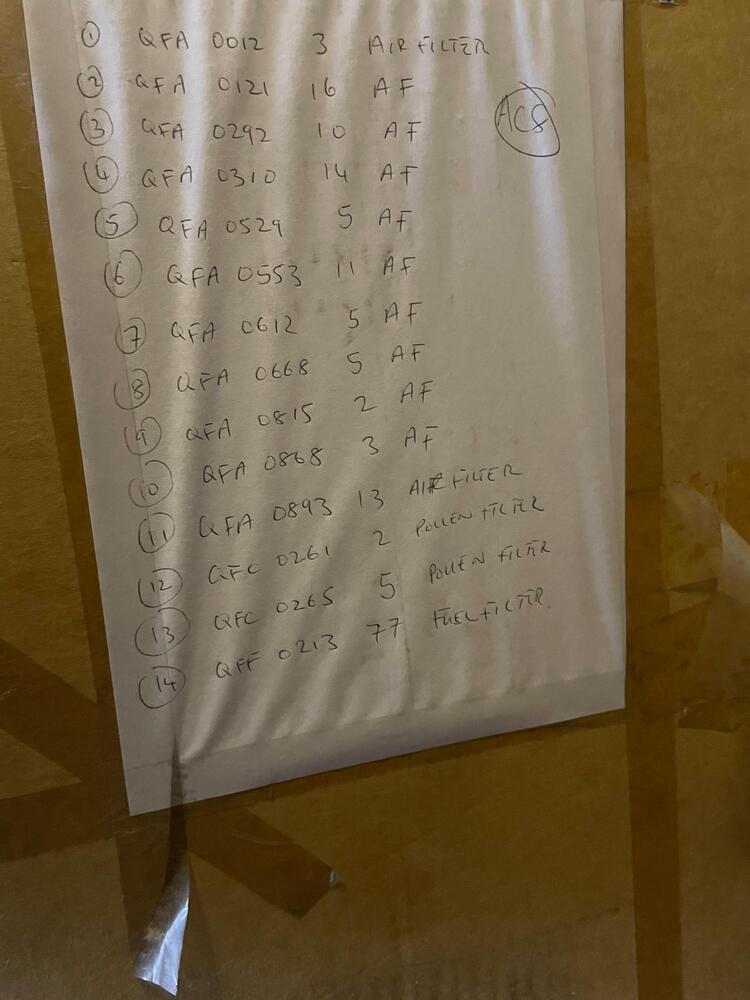 1 QFA 0012 3 AIR FILTER
2 QFA 0121 16 AF
AC8
3 QFA 0292 10 AF
4 QFA 0310 14 AF
5 QFA 0529 5 AF
6 QFA 0553 11 AF
7 QFA 0612 5 AF
8 QFA 0668 5 AF
9 QFA 0815 2 AF
10 QFA 0868 3 AF
11 QFA 0893 13 AIR FILTER
12 QFC 0261 2 POLLEN FILTER
13 QFC 0265 5 POLLEN FILTER
14 QFF 0213 77 FUEL FILTER